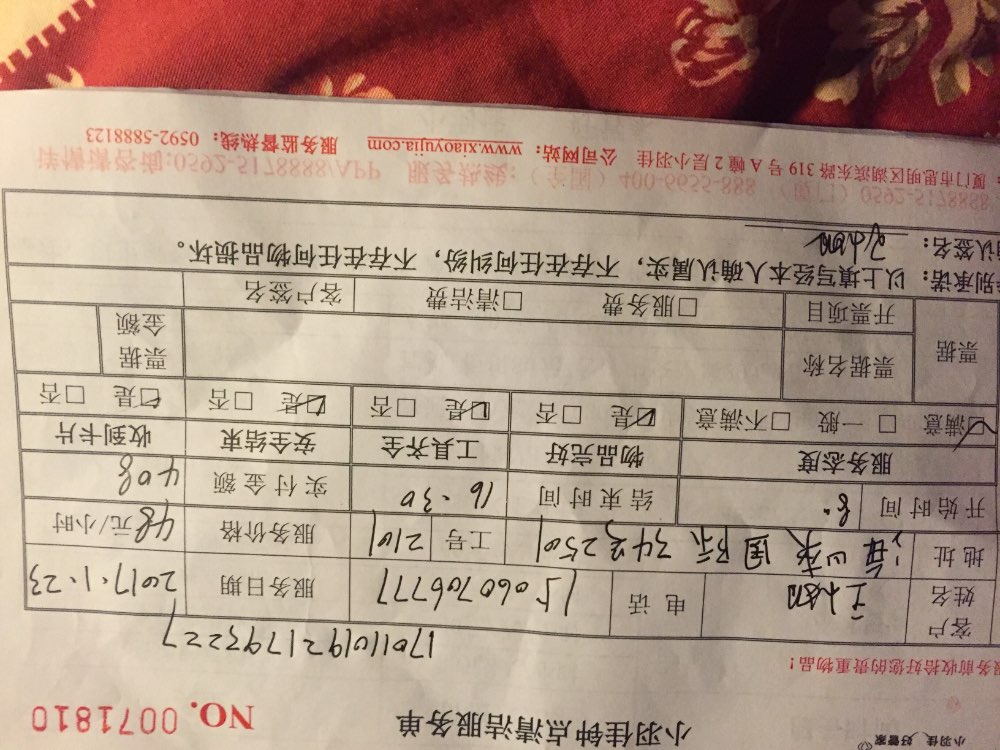 小羽佳 好管家
小羽佳钟点清洁服务单 NO. 0071810
服务前收拾好您的贵重物品！
客户姓名 电话 15060706777 服务日期 2017.1.23
地址 国际 34号2501 工号 2101 服务价格 48元/小时
开始时间 8. 结束时间 16.30 实付金额 408
服务态度 物品完好 工具齐全 安全结束 收到卡片
☑满意 □一般 □不满意 ☑是 □否 ☑是 □否 ☑是 □否 ☑是 □否
票据 票据名称 票据金额
开票项目 □服务费 □清洁费 客户签名
别承诺：以上填写经本人确认属实，不存在任何纠纷，不存在任何物品损坏。
认签名：
详情请咨询:0592-5178888/APP 服务热线:（全国）400-6655-888 （厦门）0592-5178888
：厦门市思明区湖滨东路 319 号 A 幢 2 层小羽佳 公司网站：www.xiaoyujia.com 服务监督热线：0592-5888123